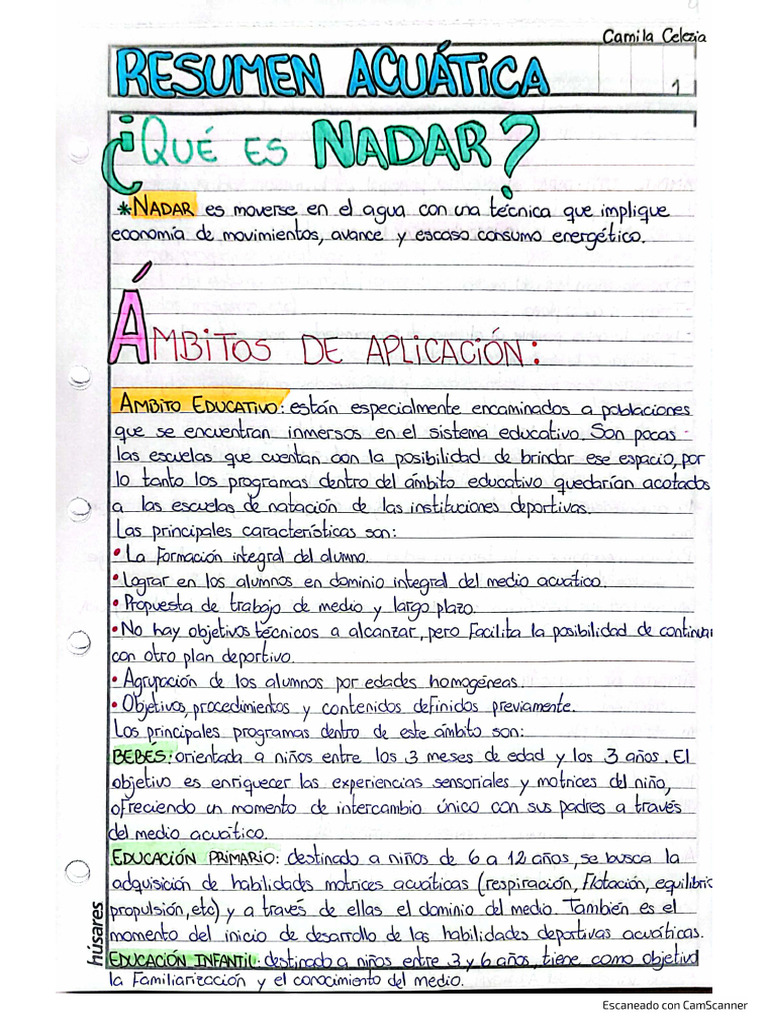 Camila Celezia
RESUMEN ACUÁTICA
1
¿QUÉ ES NADAR?
*NADAR es moverse en el agua con una técnica que implique
economía de movimientos, avance y escaso consumo energético.
ÁMBITOS DE APLICACIÓN:
AMBITO EDUCATIVO: están especialmente encaminados a poblaciones
que se encuentran inmersos en el sistema educativo. Son pocas
las escuelas que cuentan con la posibilidad de brindar ese espacio, por
lo tanto los programas dentro del ámbito educativo quedarían acotados
a las escuelas de natación de las instituciones deportivas.
Las principales características son:
• La Formación integral del alumno.
• Lograr en los alumnos en dominio integral del medio acuático.
• Propuesta de trabajo de medio y largo plazo.
• No hay objetivos técnicos a alcanzar, pero Facilita la posibilidad de continuar
con otro plan deportivo.
• Agrupación de los alumnos por edades homogéneas.
• Objetivos, procedimientos y contenidos definidos previamente.
Los principales programas dentro de este ámbito son:
BEBÉS: orientada a niños entre los 3 meses de edad y los 3 años. El
objetivo es enriquecer las experiencias sensoriales y motrices del niño,
ofreciendo un momento de intercambio único con sus padres a través
del medio acuático.
EDUCACIÓN PRIMARIO: destinado a niños de 6 a 12 años, se busca la
adquisición de habilidades motrices acuáticas (respiración, Flotación, equilibric
propulsión, etc) y a través de ellas el dominio del medio. También es el
momento del inicio de desarrollo de las habilidades deportivas acuáticas.
EDUCACIÓN INFANTIL: destinado a niños entre 3 y 6 años, tiene como objetivo
la Familiarización y el conocimiento del medio.
húsares
Escaneado con CamScanner